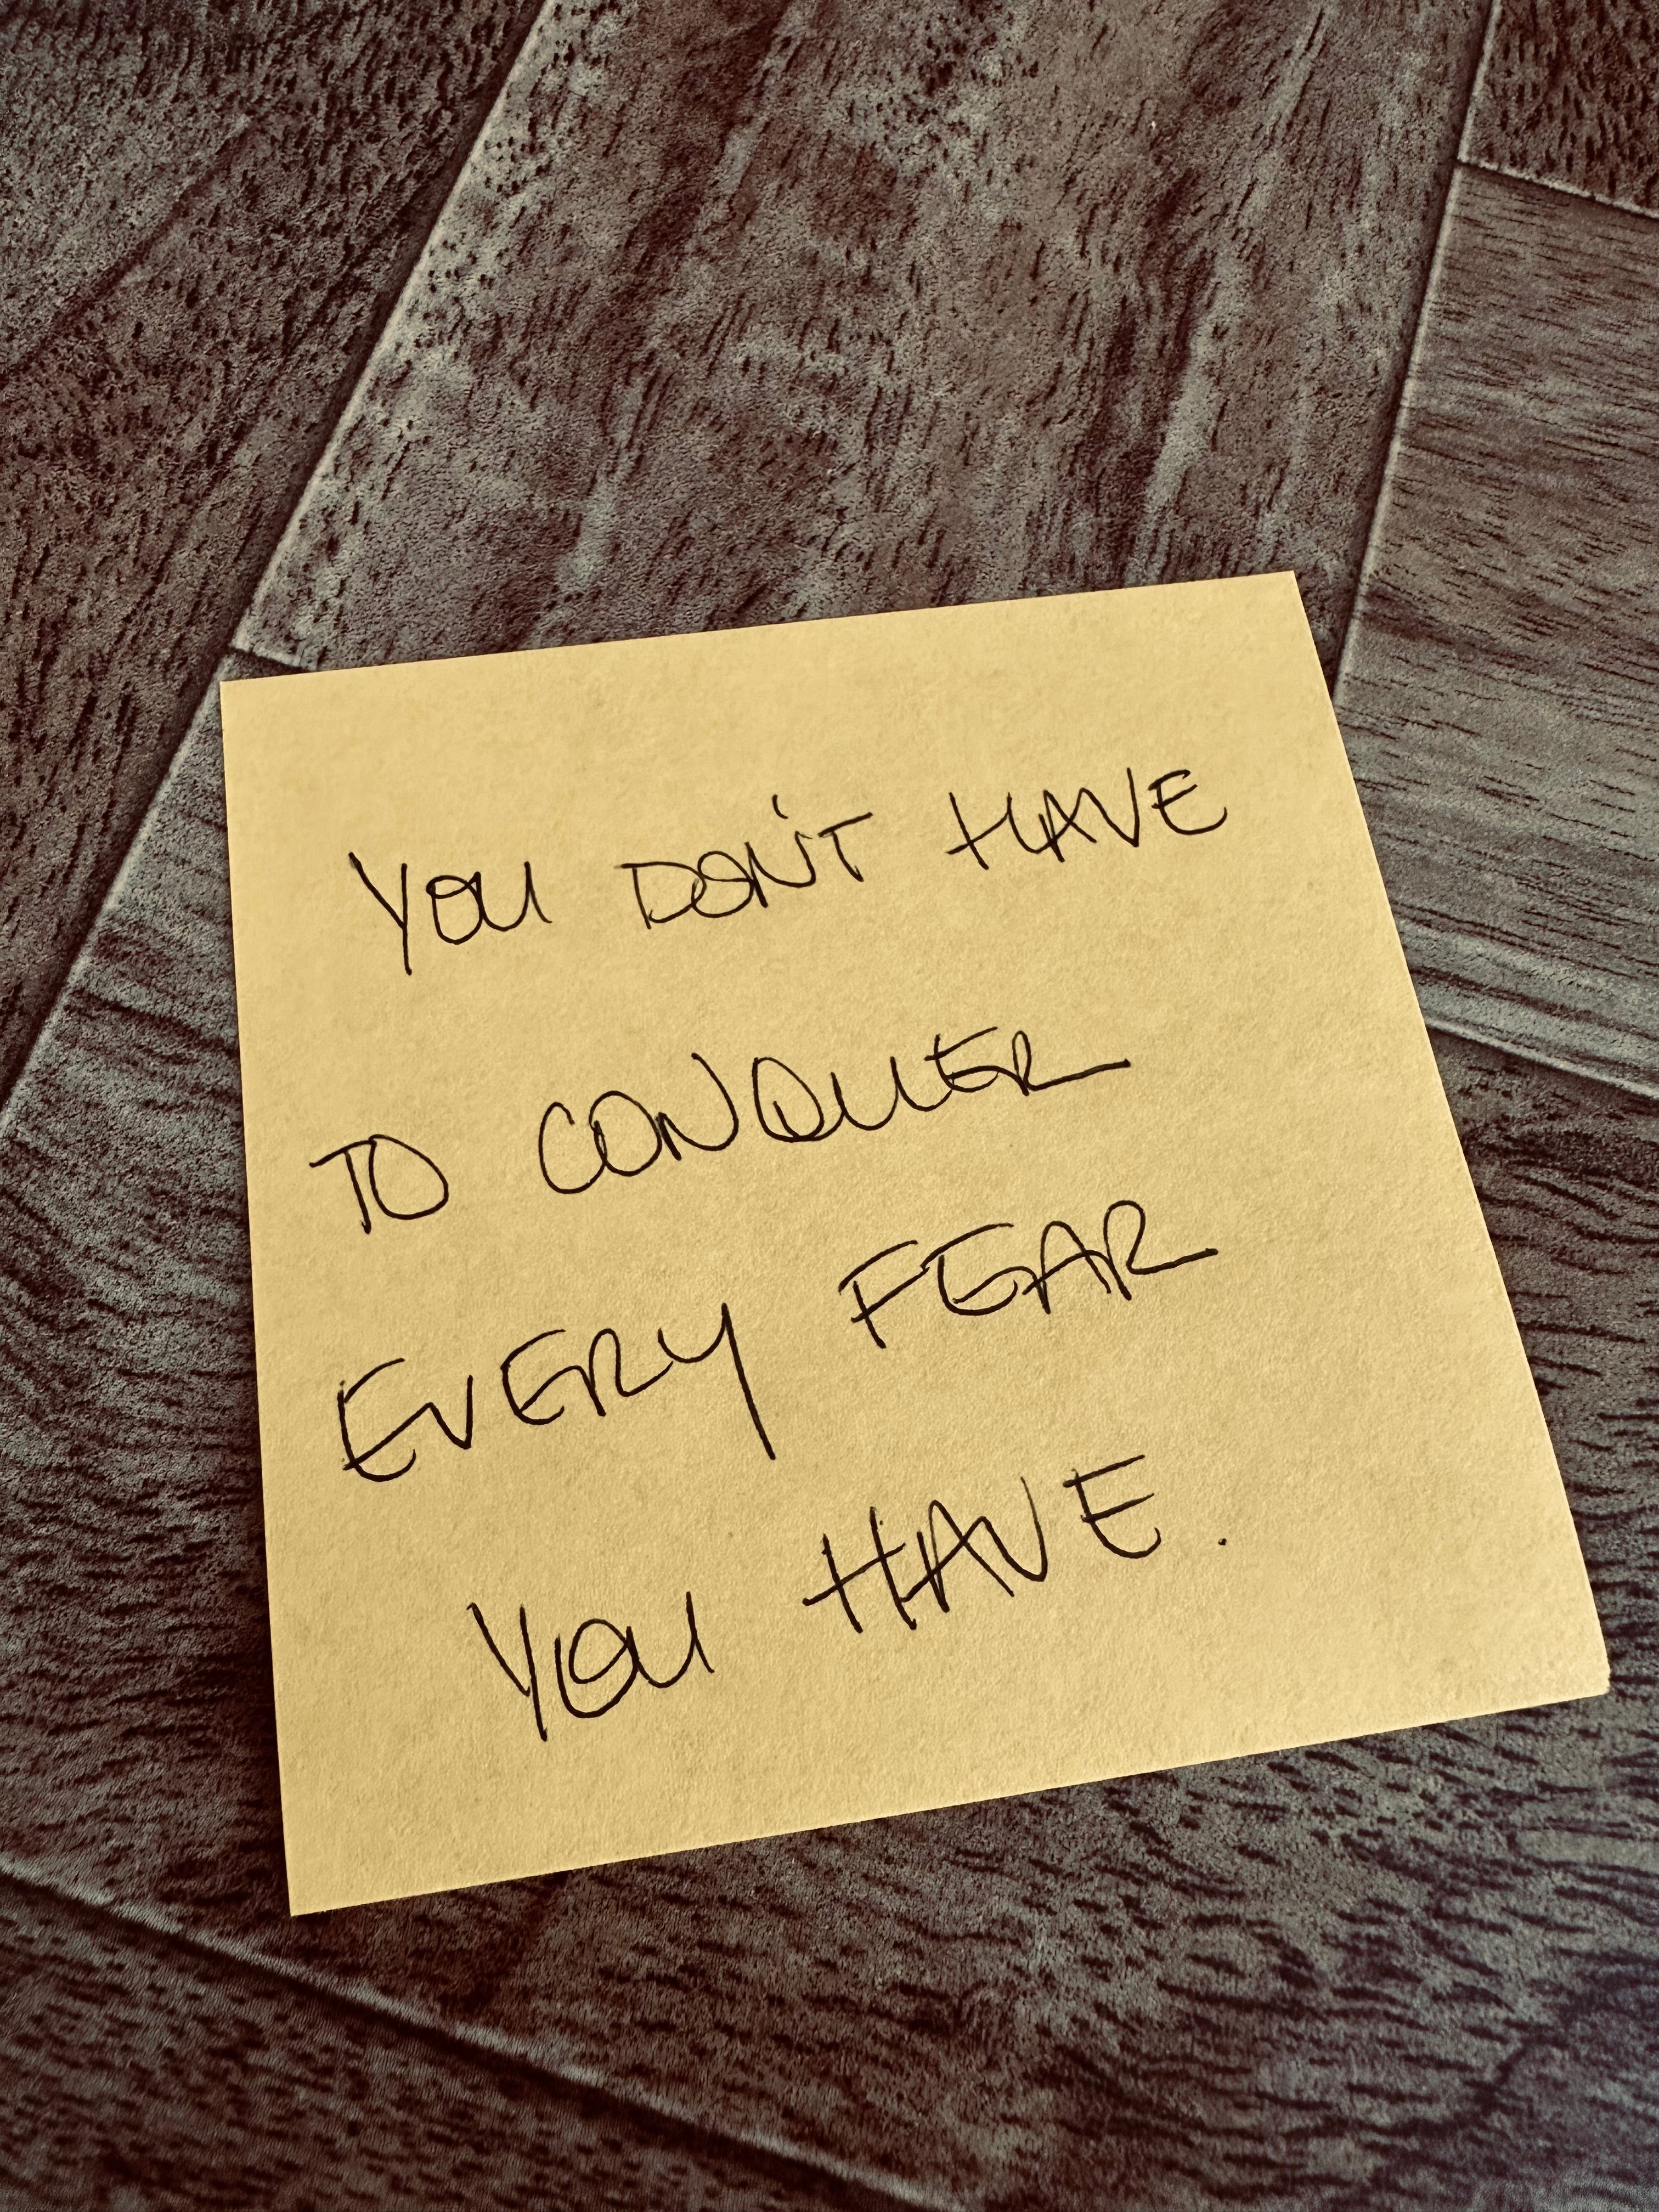 YOU DON'T HAVE
TO CONQUER
EVERY FEAR
YOU HAVE.